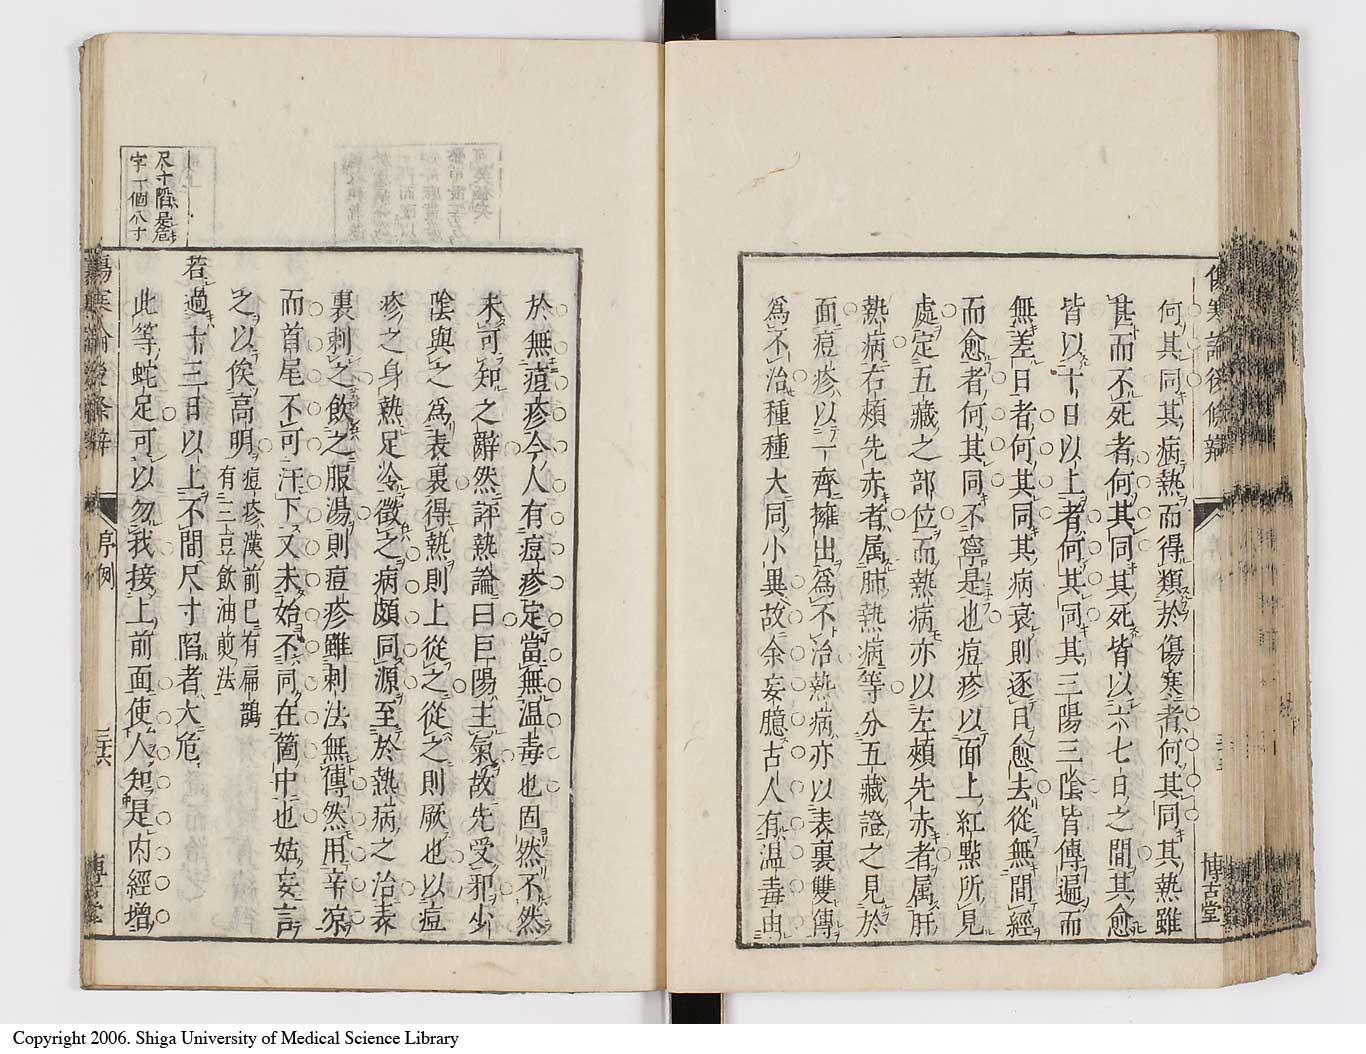 傷寒論後條辨
博古堂
何其同其病熱而得類於傷寒者何其同其熱雖
甚而不死者何其同其死皆以六七日之間其愈
皆以十日以上者何其同其三陽三陰皆傳遍而
無差日者何其同其病衰則逐日愈去從無間經
而愈者何其同不寧是也痘疹以面上紅點所見
處定五藏之部位而熱病亦以左頰先赤者属肝
熱病右頰先赤者属肺熱病等分五藏證之見於
面痘疹以一齊擁出爲不治熱病亦以表裏雙傳
爲不治種種大同小異故余妄臆古人有温毒由
於無痘疹今人有痘疹定當無温毒也固然不然
未可知之辭然評熱論曰巨陽主氣故先受邪少
陰與之爲表裏得熱則上從之從之則厥也以痘
疹之身熱足冷徵之病頗同源至於熱病之治表
裏刺之飲之服湯則痘疹雖刺法無傳然用辛凉
而首尾不可汗下又未始不同在箇中也姑妄言
之以俟高明
痘疹漢前已有扁鵲
有三豆飲油煎法
若過十三日以上不間尺寸陷者大危
此等蛇足可以勿我接上前面使人知是内經增
尺寸陷是危
字一個尺寸
傷寒論後條辨
序例
三十六
博古堂